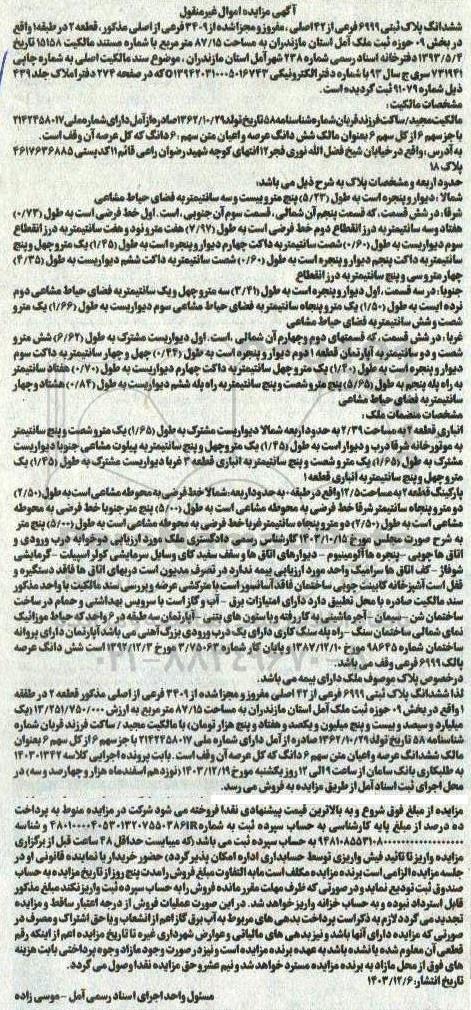 آگهی مزایده اموال غیرمنقول
ششدانگ پلاک ثبتی ۶۹۹۹ فرعی از ۴۲ اصلی ، مفروز و مجزا شده از ۳۴۰۹ فرعی از اصلی مذکور، قطعه ۲ در طبقه ۱ واقع
در بخش ۰۹ حوزه ثبت ملک آمل استان مازندران به مساحت ۸۷/۱۵ متر مربع با شماره مستند مالکیت ۱۵۱۵۸ تاریخ
۱۳۹۳/۵/۴ دفترخانه اسناد رسمی شماره ۲۳۸ شهر آمل استان مازندران ، موضوع سند مالکیت اصلی به شماره چاپی
۷۳۱۹۴۱ سری ج سال ۹۳ با شماره دفتر الکترونیکی ۱۳۹۴۲۰۳۱۰۰۰۵۰۱۶۷۴۳ که در صفحه ۲۷۴ دفتر املاک جلد ۴۳۹
ذیل شماره ۹۱۰۷۹ ثبت گردیده است.
مشخصات مالکیت:
مالکیت مجید/ساکت فرزند قربان شماره شناسنامه ۵۸ تاریخ تولد ۱۳۶۲/۱۰/۲۹ صادره از آمل دارای شماره ملی ۲۱۴۲۴۵۸۰۱۷
با جز سهم ۶ از کل سهم ۶ بعنوان مالک شش دانگ عرصه و اعیان متن سهم :۶ دانگ که کل عرصه آن وقف است.
به آدرس : واقع در خیابان شیخ فضل الله نوری فجر ۱۲ انتهای کوچه شهید رضوان راعی قائم ۱۱ کدپستی ۴۶۱۷۶۳۶۸۸۵
پلاک ۱۸
حدود اربعه و مشخصات پلاک به شرح ذیل می باشد:
شمالا : دیوار و پنجره است به طول (۵/۲۳) پنج متر و بیست و سه سانتیمتر به فضای حیاط مشاعی
شرقا: در شش قسمت ، که قسمت پنجم آن شمالی ، قسمت سوم آن جنوبی ، است . اول خط فرضی است به طول (۰/۷۳)
هفتاد و سه سانتیمتر به درز انقطاع دوم خط فرضی است به طول (۷/۹۷) هفت متر و نود و هفت سانتیمتر به درز انقطاع
سوم دیواریست به طول (۰/۶۰) شصت سانتیمتر به داکت چهارم دیوار و پنجره است به طول (۱/۴۵) یک متر و چهل و پنج
سانتیمتر به داکت پنجم دیوار و پنجره است به طول (۰/۶۰) شصت سانتیمتر به داکت ششم دیواریست به طول (۴/۳۵)
چهار متر و سی و پنج سانتیمتر به درز انقطاع
جنوبا: در سه قسمت ، اول دیوار و پنجره است به طول (۳/۴۱) سه متر و چهل و یک سانتیمتر به فضای حیاط مشاعی دوم
نرده ایست به طول (۱/۵۰) یک متر و پنجاه سانتیمتر به فضای حیاط مشاعی سوم دیواریست به طول (۱/۶۶) یک متر و
شصت و شش سانتیمتر به فضای حیاط مشاعی
غربا : در شش قسمت ، که قسمتهای دوم و چهارم آن شمالی ، است. اول دیواریست مشترک به طول (۶/۶۲) شش متر و
شصت و دو سانتیمتر به آپارتمان قطعه ۱ دوم دیوار و پنجره است به طول (۰/۴۴) چهل و چهار سانتیمتر به داکت سوم
دیوار و پنجره است به طول (۱/۴۰) یک متر و چهل سانتیمتر به داکت چهارم دیواریست به طول (۰/۷۰) هفتاد سانتیمتر
به راه پله پنجم به طول (۵/۶۵) پنج متر و شصت و پنج سانتیمتر به راه پله ششم دیواریست به طول (۰/۸۴) هشتاد و چهار
سانتیمتر به فضای حیاط مشاعی
مشخصات منضمات ملک :
انباری قطعه ۲ به مساحت ۲/۳۹ به حدود اربعه شمالا دیواریست مشترک به طول (۱/۶۵) یک متر و شصت و پنج سانتیمتر
به موتورخانه شرقا درب و دیوار است به طول (۱/۴۵) یک متر و چهل و پنج سانتیمتر به پیلوت مشاعی جنوبا دیواریست
مشترک به طول (۱/۶۵) یک متر و شصت و پنج سانتیمتر به انباری قطعه ۳ غربا دیواریست مشترک به طول (۱/۴۵) یک
متر و چهل و پنج سانتیمتر به انباری قطعه ۱
پارکینگ قطعه ۲ به مساحت ۱۲/۵ واقع در طبقه ۰ به حدود اربعه : شمالا خط فرضی به محوطه مشاعی است به طول (۲/۵۰)
دو متر و پنجاه سانتیمتر شرقا خط فرضی به محوطه مشاعی است به طول (۵/۰۰) پنج متر جنوبا خط فرضی به محوطه
مشاعی است به طول (۲/۵۰) دو متر و پنجاه سانتیمتر غربا خط فرضی به محوطه مشاعی است به طول (۵/۰۰) پنج متر
به شرح صورت مجلس مورخ ۱۴۰۳/۱۰/۱۵ کارشناس رسمی دادگستری ملک مورد ارزیابی دوخوابه درب ورودی و
اتاق ها چوبی – پنجره ها آلومینیوم – دیوارهای اتاق ها و سقف سفید کای وسایل سرمایشی کولر اسپیلت – گرمایشی
شوفاژ – کف اتاق ها سرامیک واحد مورد ارزیابی بیمه ندارد در تصرف مدیون است دربهای اتاق ها فاقد دستگیره و
قفل است آشپزخانه کابینت چوبی ساختمان فاقد آسانسور است با مترکشی عرصه و بررسی سند مالکیت با واحد مذکور
سند مالکیت صادره با محل تطبیق دارد دارای امتیازات برق – آب و گاز است با سرویس بهداشتی و حمام در ساخت
ساختمان شن – سیمان – آجر ماشینی به کار رفته و با ستون های بتنی – آپارتمان سه طبقه در ۶ واحد کف حیاط موزائیک
نمای شمالی ساختمان سنگ – راه پله سنگ کاری دارای یک درب ورودی بزرگ آهنی می باشد آپارتمان دارای پروانه
ساختمان شماره ۹۸۶۴۵ مورخ ۱۳۸۷/۱۲/۱۰ و پایان کار شماره ۳/۷۵۰۶۲ مورخ ۱۳۹۲/۱۲/۳ است شش دانگ عرصه
پالک ۶۹۹۹ فرعی وقف می باشد.
درخصوص پلاک موصوف ملک دارای بیمه می باشد.
لذا ششدانگ پلاک ثبتی ۶۹۹۹ فرعی از ۴۲ اصلی مفروز و مجزا شده از ۳۴۰۹ فرعی از اصلی مذکور قطعه ۲ در طقفه
۱ واقع در بخش ۰۹ حوزه ثبت ملک آمل استان مازندران به مساحت ۸۷/۱۵ متر مربع به ارزش ۱۳/۲۵۱/۷۵۰/۰۰۰ (یک
میلیارد و سیصد و بیست و پنج میلیون و یکصد و هفتاد و پنج هزار تومان) با مالکیت مجید / ساکت فرزند قربان شماره
شناسنامه ۵۸ تاریخ تولد ۱۳۶۲/۱۰/۲۹ صادره از آمل دارای شماره ملی ۲۱۴۲۴۵۸۰۱۷ با جز سهم ۶ از کل سهم ۶ بعنوان
مالک ششدانگ عرصه واعیان متن سهم ۶ دانگ که کل عرصه آن وقف است . بابت پرونده اجرایی کلاسه ۱۴۰۳۰۱۳۴۲
به طلبکاری بانک سامان از ساعت ۹ الی ۱۲ روز یکشنبه مورخ ۱۴۰۳/۱۲/۱۹ (نوزدهم اسفندماه هزار و چهارصد و سه) در
محل اجرای ثبت اسناد آمل از طریق مزایده به فروش می رسد.
مزایده از مبلغ فوق شروع و به بالاترین قیمت پیشنهادی نقدا فروخته می شود شرکت در مزایده منوط به پرداخت
ده درصد از مبلغ پایه کارشناسی به حساب سپرده ثبت به شماره و شناسه
به حساب سپرده ثبت می باشد (که میبایست حداقل ۴۸ ساعت قبل از برگزاری
مزایده واریز تا تائید فیش واریزی توسط حسابداری اداره امکان پذیر گردد) حضور خریدار یا نماینده قانونی او در
جلسه مزایده الزامی است برنده مزایده مکلف است مابه التفاوت مبلغ فروش را مدت پنج روز از تاریخ مزایده به حساب
صندوق ثبت تودیع نماید و در صورتی که ظرف مهلت مقرر مانده فروش را به حساب سپرده ثبت واریز نکند مبلغ مذکور
قابل استرداد نبوده و به حساب خزانه واریز خواهد شد. در این صورت عملیات فروش از درجه اعتبار ساقط و مزایده
تجدید می گردد لازم به ذکر است پرداخت بدهی های مربوط به آب برق گاز اعم از انشعاب و یا حق اشتراک و مصرف در
صورتی که مزایده دارای آنها باشد و نیز بدهی های مالیاتی و عوارض شهرداری غیره تا تاریخ مزایده اعم از اینکه رقم
قطعی آن معلوم شده یا نشده باشد به عهده برنده مزایده است و نیز در صورت وجود مازاد وجوه پرداختی بابت هزینه
های فوق از محل مازاد به برنده مزایده مسترد خواهد شد و نیم عشر و حق مزایده نقدا وصول می گردد.
تاریخ انتشار: ۱۴۰۳/۱۲/۶
مسئول واحد اجرای اسناد رسمی آمل – موسی زاده